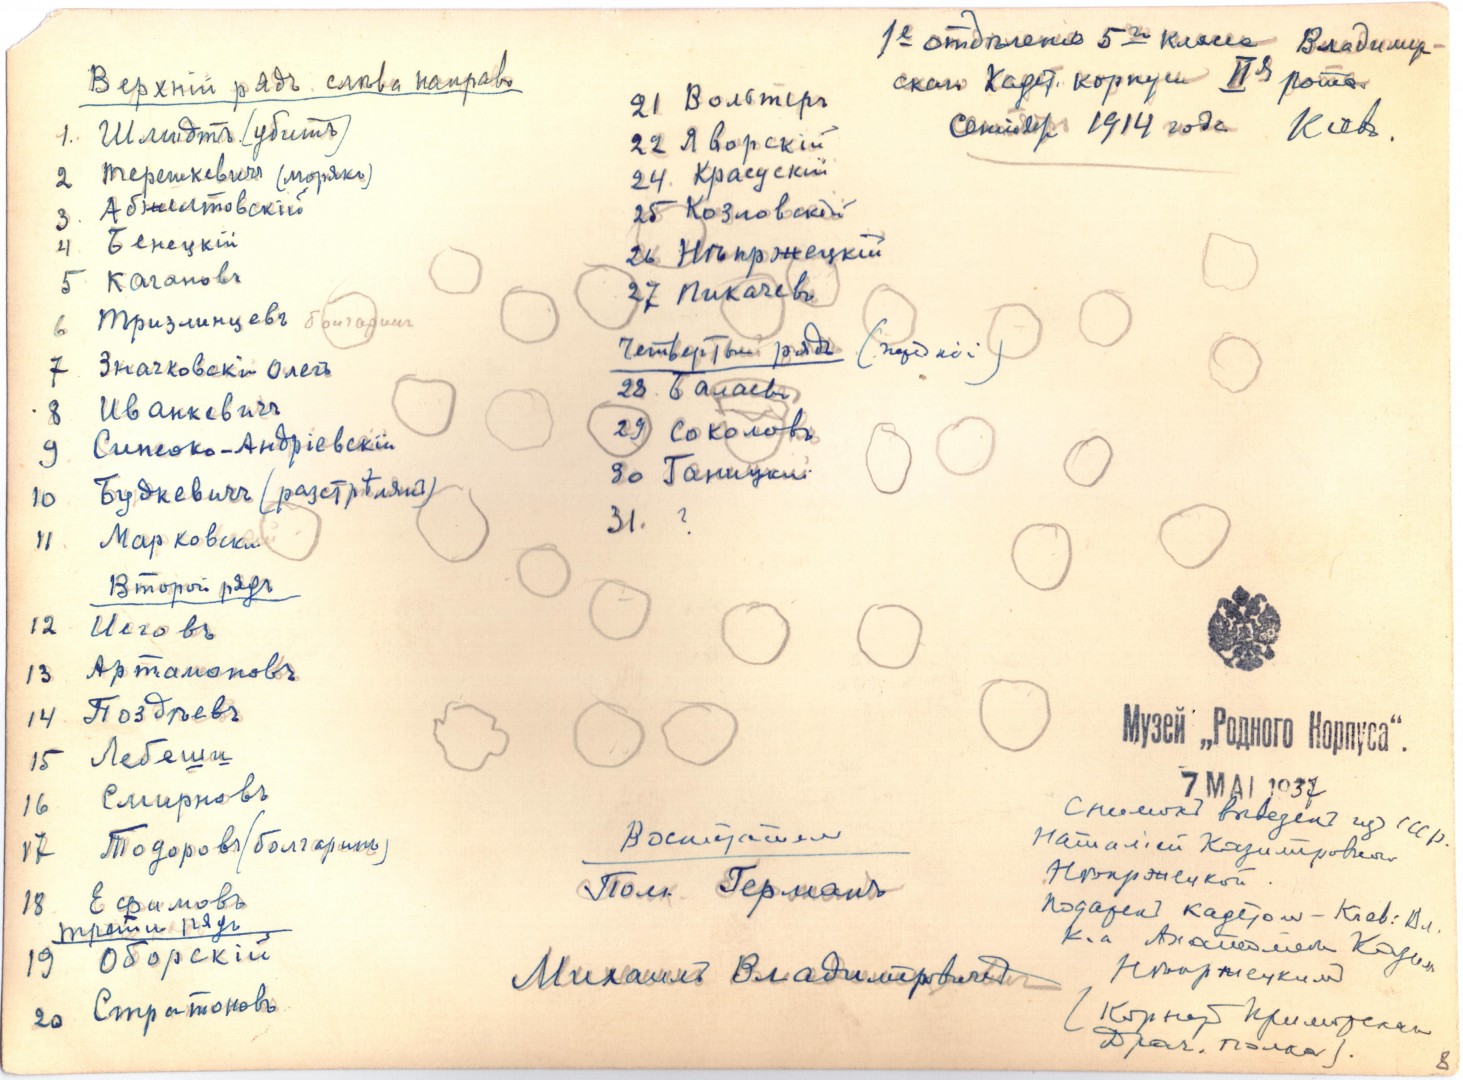 1е отдѣленіе 5го класса Владимир-
скаго Кадет. корпуса IIя рота
Сентябр 1914 года Кіевъ.
Верхній рядъ слѣва направо
1. Шмидтъ (убитъ)
2 Терешкевичъ (морякъ)
3. Абжелтовскій
4 Бенецкій
5 Кагановъ
6 Тризлинцевъ болгаринъ
7 Значковскій Олегъ
8 Иванкевичъ
9 Сипсоко-Андріевскій
10 Будкевичъ (разстрѣлянъ)
11 Марковскій
Второй рядъ
12 Исговъ
13 Артамоновъ
14 Поздѣевъ
15 Лебеши
16 Смирновъ
17 Тодоровъ (болгаринъ)
18 Ефимовъ
третій рядъ
19 Оборскій
20 Стратоновъ
21 Вольтеръ
22 Яворскій
24. Красускій
25 Козловскій
26 Нѣпржецкій
27 Пикачевъ
Четвертый рядъ (передній)
28 Балаевъ
29 Соколовъ
30 Ганицкій
31. ?
Воспитатель
Полк. Германъ
Михаилъ Владимировичъ
Музей „Родного Корпуса“.
7 MAI 1937
Снимокъ вывезенъ из СССР.
Наталіей Казимировной
Нѣпржецкой.
Подаренъ кадетом - Кіев: Вл.
К.а Анатолiем Казим
Нѣпржецкимъ
(Корнет Приморскаго
Драг. полка).
8